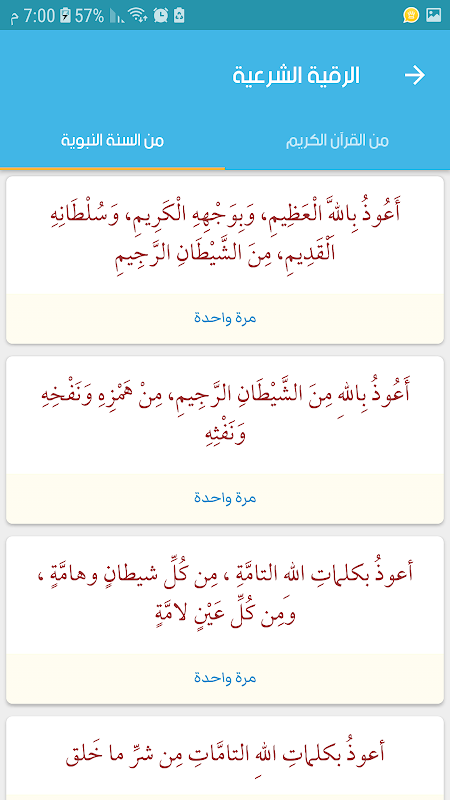 7:00 م 57%
الرقية الشرعية
من القرآن الكريم
من السنة النبوية
أَعُوذُ بِاللهَِّ الْعَظِيمِ، وَبِوَجْهِهِ الْكَرِيمِ، وَسُلْطَانِهِ
الْقَدِيمِ، مِنَ الشَّيْطَانِ الرَّجِيمِ
مرة واحدة
أَعُوذُ بِاللهِ مِنَ الشَّيْطَانِ الرَّجِيمِ، مِنْ هَمْزِهِ وَنَفْخِهِ
وَنَفْثِهِ
مرة واحدة
أعوذُ بكلماتِ الله التامَّةِ ، مِن كُلِّ شيطانٍ وهامَّةٍ ،
وَمِن كُلِّ عَيْنٍ لامَّةٍ
مرة واحدة
أعوذُ بكلماتِ اللهِ التامَّاتِ مِن شرِّ ما خَلق